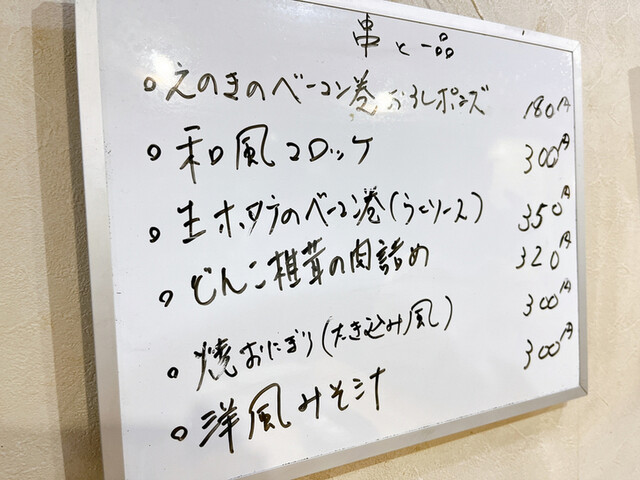 串と一品
えのきのベーコン巻おろしポンズ 180円
和風コロッケ 300円
生ホタテのベーコン巻(うにソース) 350円
どんこ椎茸の肉詰め 320円
焼おにぎり(たき込み風) 300円
洋風みそ汁 300円